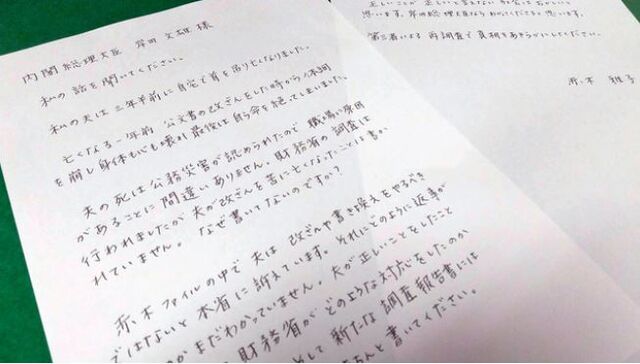 内閣総理大臣 岸田 文雄 様
私の話を聞いてください。
私の夫は三年半前に自宅で首を吊り亡くなりました。
亡くなる一年前、公文書の改ざんをした時から体調
を崩し身体も心も壊れ、最後は自ら命を絶ってしまいました。
夫の死は公務災害が認められたので、職場に原因
があることに間違いありません。財務省の調査は
行われましたが夫が改ざんを苦に亡くなったことは書か
れていません。なぜ書いてないのですか?
赤木ファイルの中で夫は改ざんや書き換えをやるべき
ではないと本省に訴えています。それにどのように返事が
まだわかっていません。夫が正しいことをしたこと
財務省がどのような対応をしたのか
として新たな調査報告書には
ちんと書いてください。
正しいことが正しいと言えない
思います。岸田総理大臣なら わかってくださると思います。
第三者による再調査で真相をあきらかにしてください。
赤木 雅子